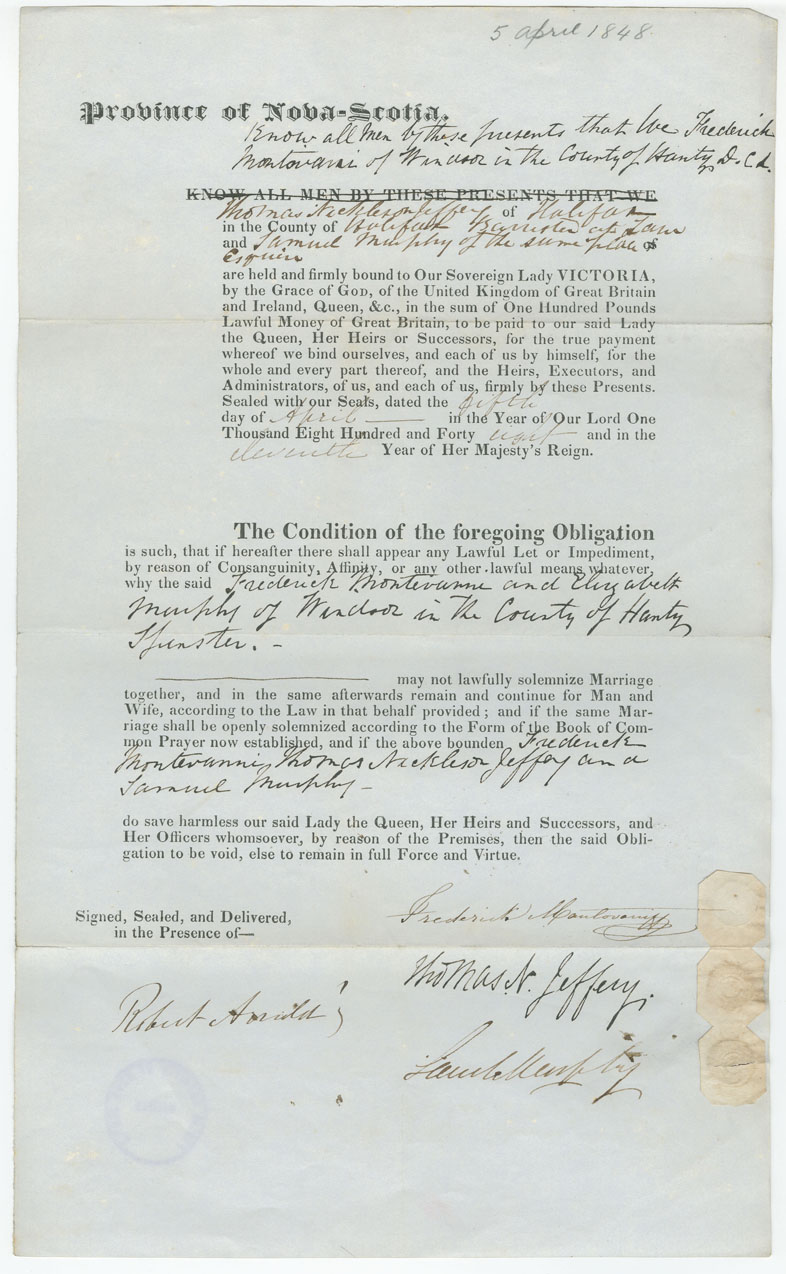 5 april 1848
Province of Nova-Scotia.
Know all Men by these presents that We Frederick
Montovanni of Windsor in the County of Hants, D.C.L.
KNOW ALL MEN BY THESE PRESENTS THAT WE
Thomas Nickleson Jeffery of Halifax
in the County of Halifax Barrister at Law
and Samuel Murphy of the same place of
Esquire
are held and firmly bound to Our Sovereign Lady VICTORIA,
by the Grace of GOD, of the United Kingdom of Great Britain
and Ireland, Queen, &c., in the sum of One Hundred Pounds
Lawful Money of Great Britain, to be paid to our said Lady
the Queen, Her Heirs or Successors, for the true payment
whereof we bind ourselves, and each of us by himself, for the
whole and every part thereof, and the Heirs, Executors, and
Administrators, of us, and each of us, firmly by these Presents.
Sealed with our Seals, dated the fifth
day of April in the Year of Our Lord One
Thousand Eight Hundred and Forty eight and in the
eleventh Year of Her Majesty's Reign.
The Condition of the foregoing Obligation
is such, that if hereafter there shall appear any Lawful Let or Impediment,
by reason of Consanguinity, Affinity, or any other lawful means whatever,
why the said Frederick Montevanne and Elizabeth
Murphy of Windsor in the County of Hants
Spinster. -
may not lawfully solemnize Marriage
together, and in the same afterwards remain and continue for Man and
Wife, according to the Law in that behalf provided; and if the same Mar-
riage shall be openly solemnized according to the Form of the Book of Com-
mon Prayer now established, and if the above bounden Frederick
Montevanni, Thomas Nickleson Jeffery and
Samuel Murphy -
do save harmless our said Lady the Queen, Her Heirs and Successors, and
Her Officers whomsoever, by reason of the Premises, then the said Obli-
gation to be void, else to remain in full Force and Virtue.
Signed, Sealed, and Delivered,
in the Presence of—
Frederick Mantovani
Thomas. N. Jeffery.
Robert Arnold
Saml Murphy